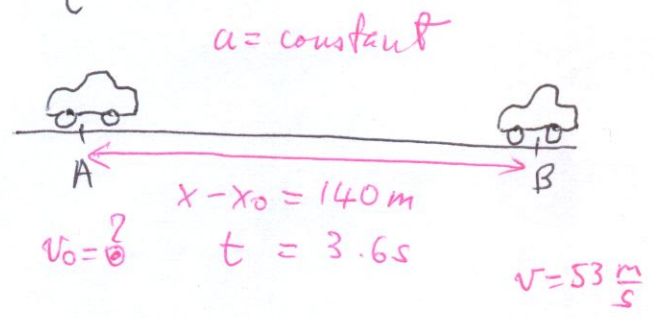 a = constant
A
B
x - x₀ = 140 m
v₀ = ?
t = 3.6s
v = 53 m/s